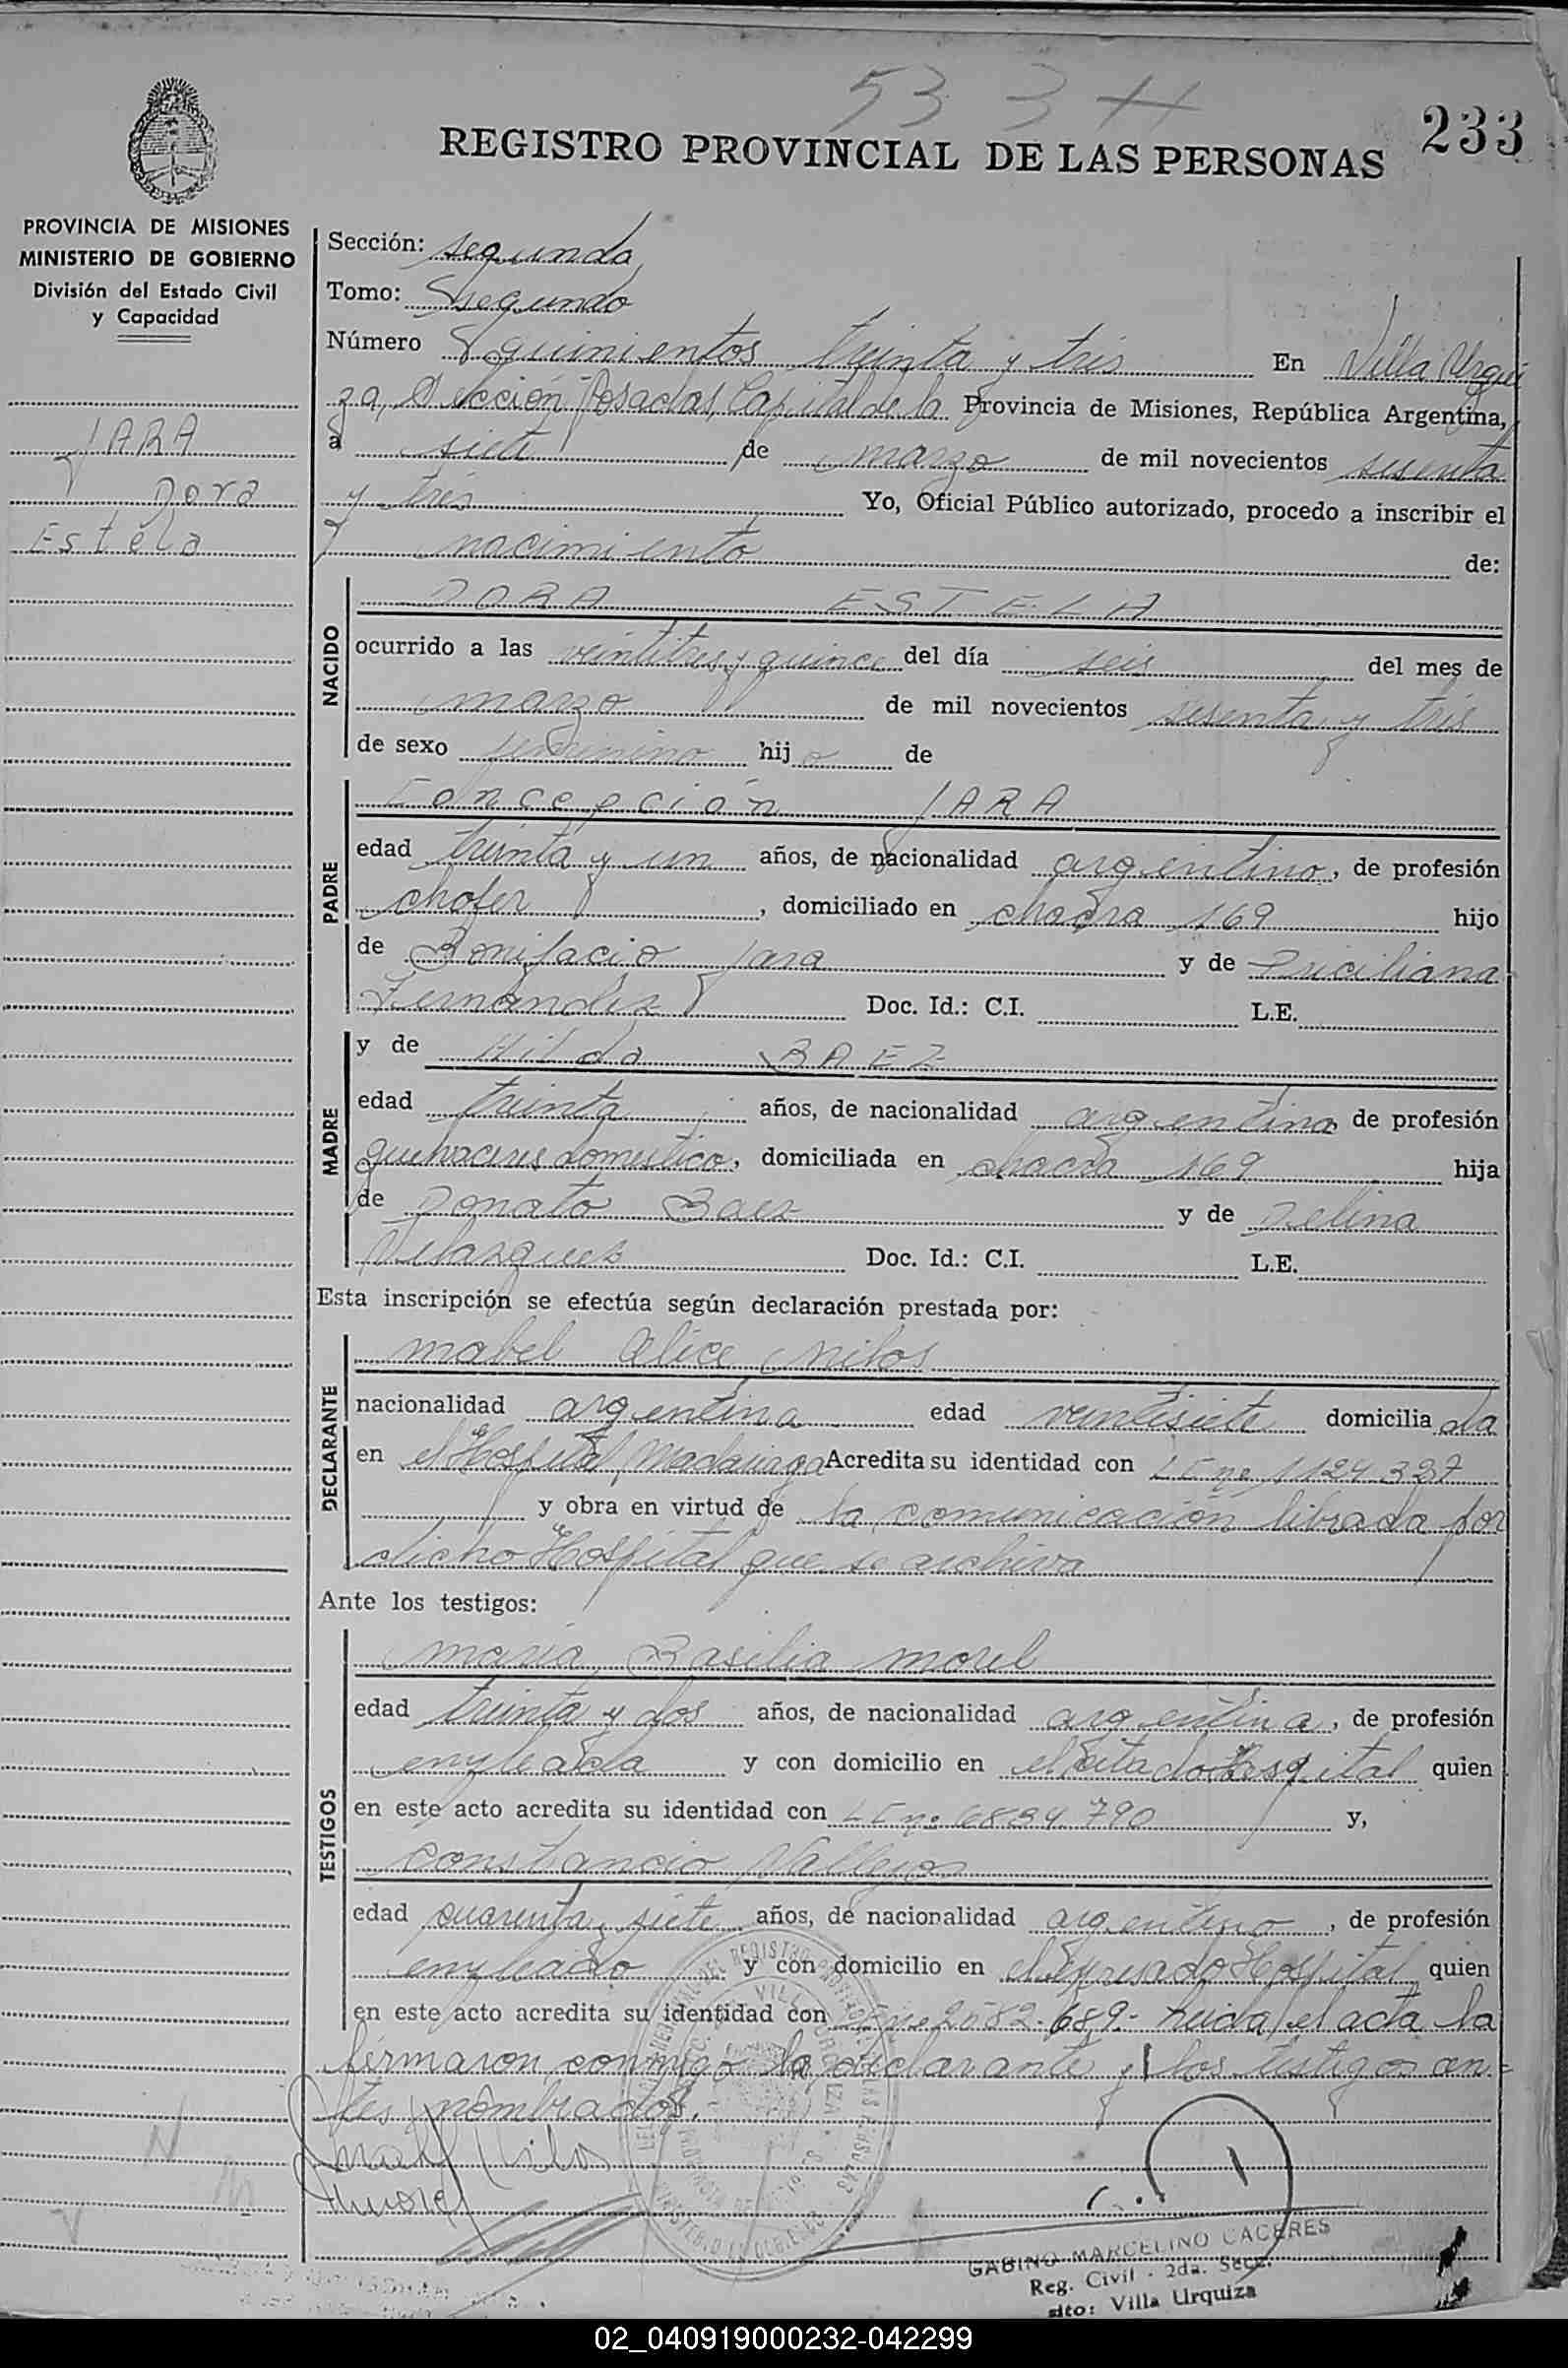 533
233
REGISTRO PROVINCIAL DE LAS PERSONAS
PROVINCIA DE MISIONES
MINISTERIO DE GOBIERNO
División del Estado Civil
y Capacidad
JARA
Dora
Estela
Sección: segunda
Tomo: segundo
Número quinientos treinta y tres En Villa Urqui
za, Sección Posadas, Capital de la Provincia de Misiones, República Argentina,
a siete de marzo de mil novecientos sesenta
y tres Yo, Oficial Público autorizado, procedo a inscribir el
nacimiento de:
NACIDO
DORA ESTELA
ocurrido a las veintitres y quince del día seis del mes de
marzo de mil novecientos sesenta y tres
de sexo femenino hija de
PADRE
Concepción JARA
edad treinta y un años, de nacionalidad argentino, de profesión
chofer, domiciliado en chacra 169 hijo
de Bonifacio Jara y de
Fernández Doc. Id.: C.I. L.E.
MADRE
y de Hilda BAEZ
edad treinta años, de nacionalidad argentina de profesión
quehaceres domestico, domiciliada en chacra 169 hija
de Donato Baez y de
Velazquez Doc. Id.: C.I. L.E.
Esta inscripción se efectúa según declaración prestada por:
DECLARANTE
Mabel Alice Milos
nacionalidad argentina edad veintisiete domiciliada
en el Hospital Madariaga Acredita su identidad con LC no 1124327
y obra en virtud de la comunicación librada por
dicho Hospital que se archiva
Ante los testigos:
TESTIGOS
Maria Basilia Morel
edad treinta y dos años, de nacionalidad argentina, de profesión
empleada y con domicilio en el citado Hospital quien
en este acto acredita su identidad con LC no 6834790 y,
Constancio Vallejos
edad cuarenta y siete años, de nacionalidad argentino, de profesión
empleado y con domicilio en el expresado Hospital quien
en este acto acredita su identidad con 2582.689.- Leida el acta la
firmaron conmigo la declarante y los testigos an-
tes nombrados.
GABINO MARCELINO CACERES
Reg. Civil - 2da. Secc.
sito: Villa Urquiza
02_040919000232-042299